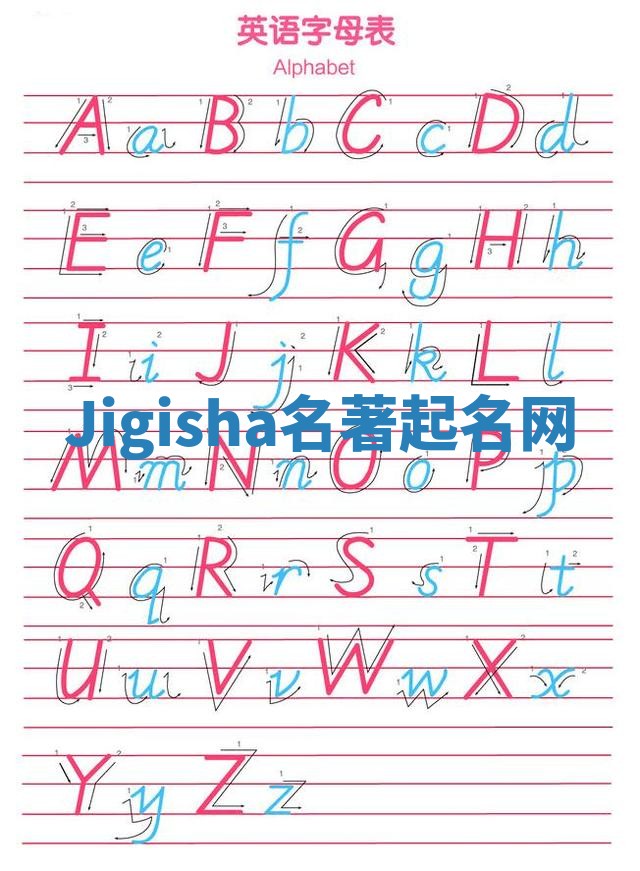 英语字母表
Alphabet
A a B b C c D d
E e F f G g H h
I i J j K k L l
Jigisha名著起名网
M m N n O o P p
Q q R r S s T t
U u V v W w X x
Y y Z z